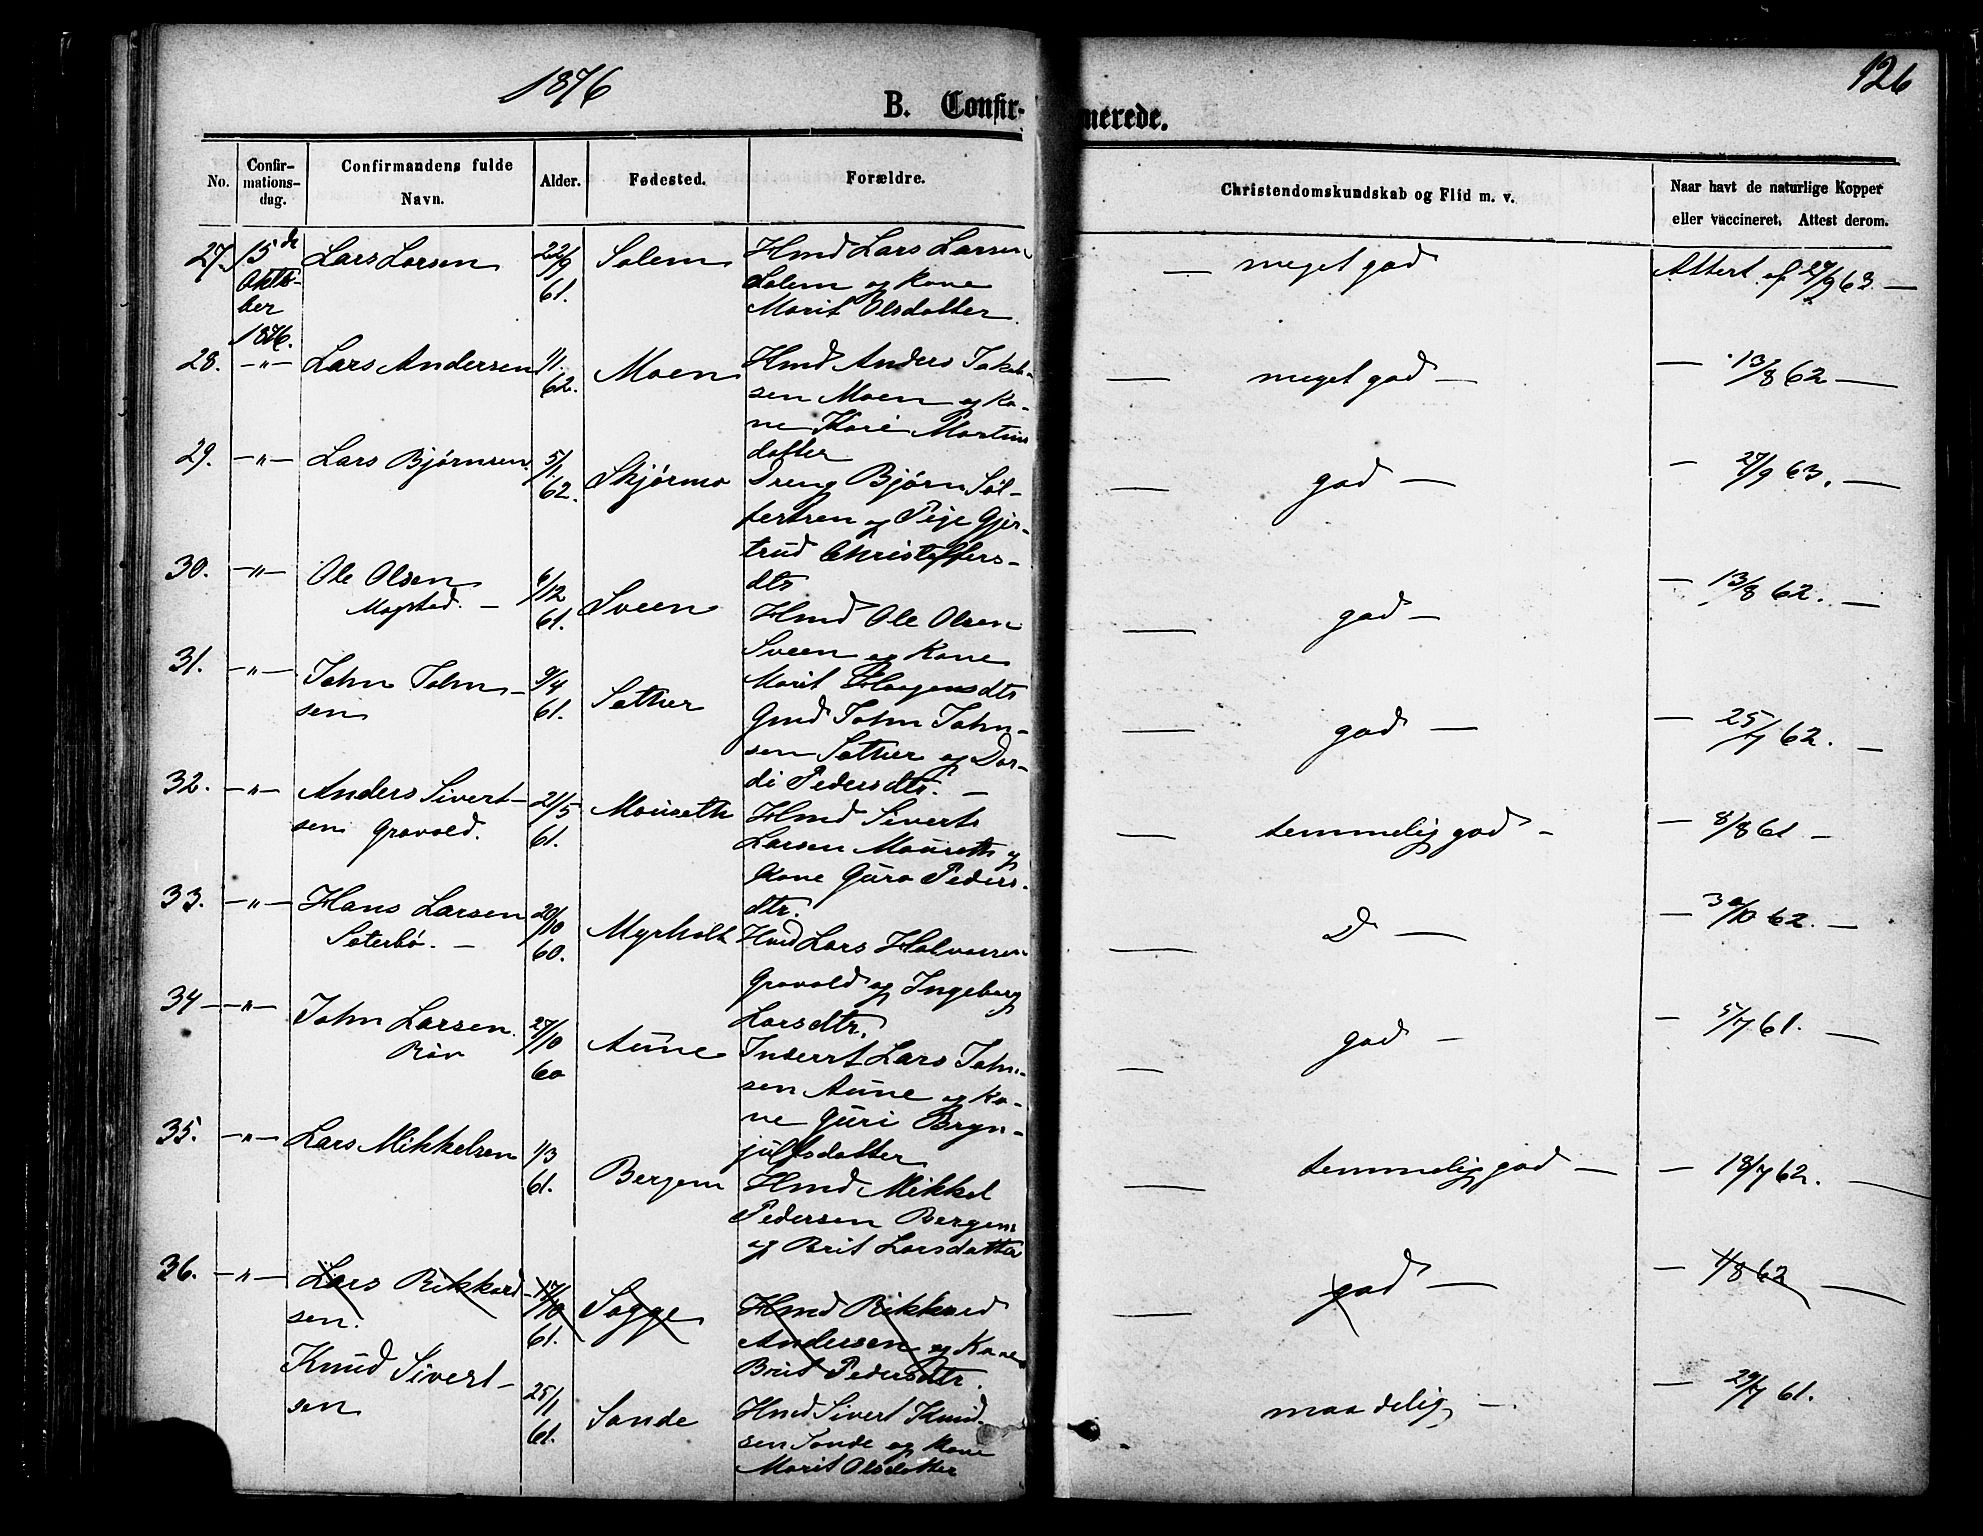 1876
126
B. Confir-
merede.
No.
Confir-
mations-
dag.
Confirmandens fulde
Navn.
Alder.
Fødested.
Forældre.
Christendomskundskab og Flid m. v.
Naar havt de naturlige Kopper
eller vaccineret. Attest derom.
27. 15de Lars Larsen 22/9 Solem Hmd Lars Larsen — meget god Attest af 27/9 63. —
Okto- 61. Solem og Kone
ber Marit Olsdatter.
1876.
28. —"— Lars Andersen 1/1. Moen Hmd Anders Jakob- — meget god — — 13/8 62 —
62. sen Moen og Ko-
ne Kari Martins
datter
29. —"— Lars Bjørnsen. 5/1 Skjørmo Dreng Bjørn Søl- — god — — 27/9 63. —
62. fertsen og Pige Gjer-
trud Christoffers-
dtr
30. —"— Ole Olsen 6/12 Sveen Hmd Ole Olsen — god — — 13/8 62. —
Magstad. — 61. Sveen og Kone
Marit Haagensdtr
31. —"— John John- 9/4 Sæther Gmd John John- — god — — 25/7 62. —
sen 61. sen Sæther og Dor-
di Pedersdtr. —
32. —"— Anders Sivert- 21/5 Mouseth Hmd Siverts — temmelig god — — 8/8 61 —
sen Gravold. 61. Larsen Mouseth og
Kone Guro Peders-
dtr.
33. —"— Hans Larsen 20/10 Myrholt Hmd Lars Halvorsen — D — — 30/10 62. —
Sæterbø. — 60. Gravold og Ingeborg
Larsdtr.
34 —"— John Larsen. 27/10 Aune Inderst Lars John- — god — — 5/7 61. —
Røv 60 sen Aune og Ko-
ne Guri Bryn-
julfsdatter
35. —"— Lars Mikkelsen 1/3 Bergem Hmd Mikkel — temmelig god — — 18/7 62. —
61. Pedersen Bergem
og Brit Larsdatter
36. —"— Lars Rikkard- 17/10 Sogge Hmd Rikkard — god — — 4/8 62 —
sen. 61. Andersen og Kone
Brit Pedersdtr.
Knud Sivert- 25/1 Sande Hmd Sivert Knud- maadelig — — 29/7 61.
sen 61. sen Sande og Kone
Marit Olsdatter